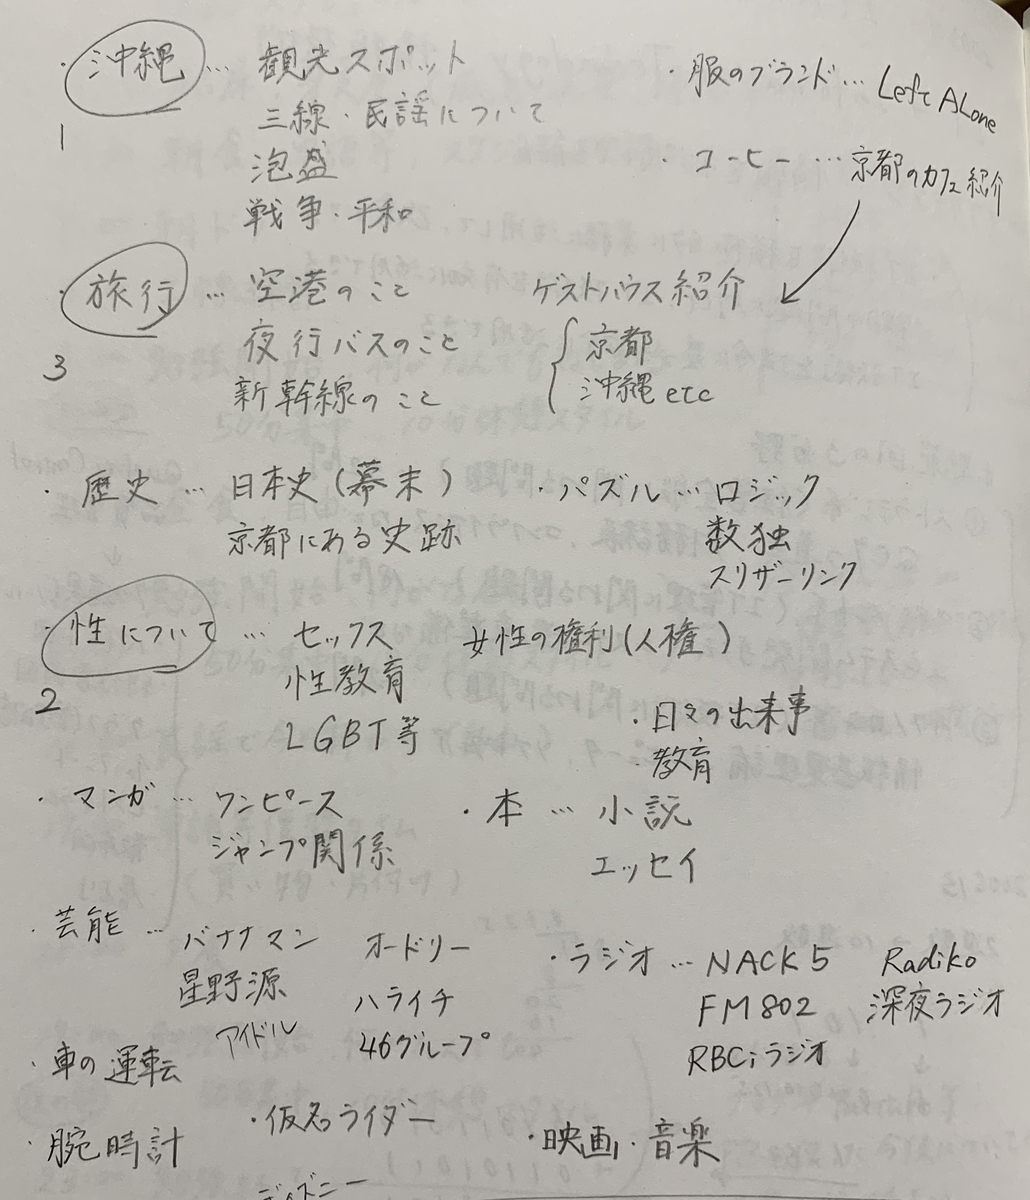 ・沖縄 … 観光スポット
1
三線・民謡について
泡盛
戦争・平和
・服のブランド … Left Alone
・コーヒー … 京都のカフェ紹介
・旅行 … 空港のこと
3
夜行バスのこと
新幹線のこと
ゲストハウス紹介
京都
沖縄 etc
・歴史 … 日本史(幕末)
京都にある史跡
・パズル … ロジック
数独
スリザーリンク
・性について … セックス
2
性教育
LGBT等
女性の権利(人権)
・日々の出来事
・教育
・マンガ … ワンピース
ジャンプ関係
・本 … 小説
エッセイ
・芸能 … バナナマン
星野源
アイドル
オードリー
ハライチ
46グループ
・ラジオ … NACK5
FM802
RBCiラジオ
Radiko
深夜ラジオ
・車の運転
・腕時計
・仮名ライダー
ディズニー
・映画・音楽